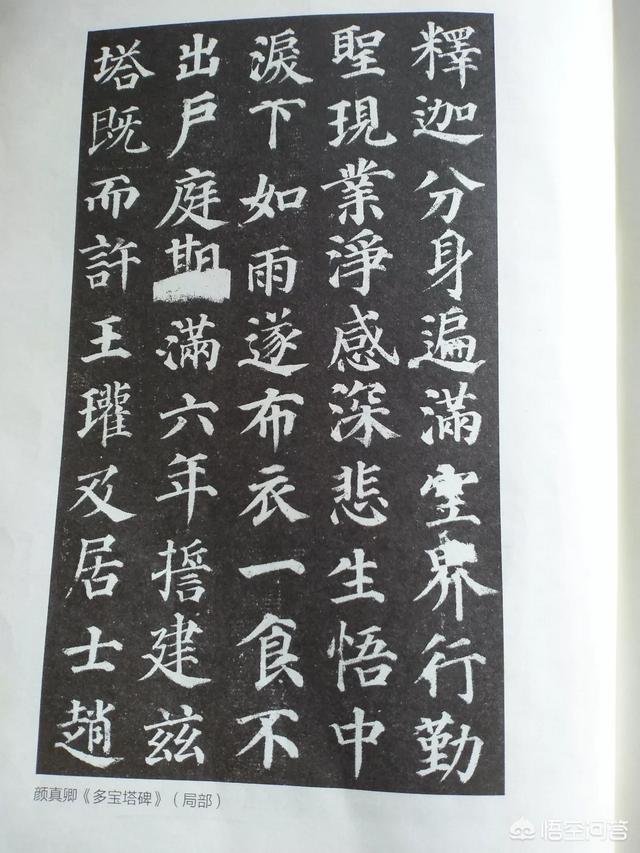 釋迦分身遍滿空界行勤
聖現業淨感深悲生悟中
淚下如雨遂布衣一食不
出戶庭期滿六年誓建茲
塔既而許王瓘及居士趙
颜真卿《多宝塔碑》（局部）
悟空问答